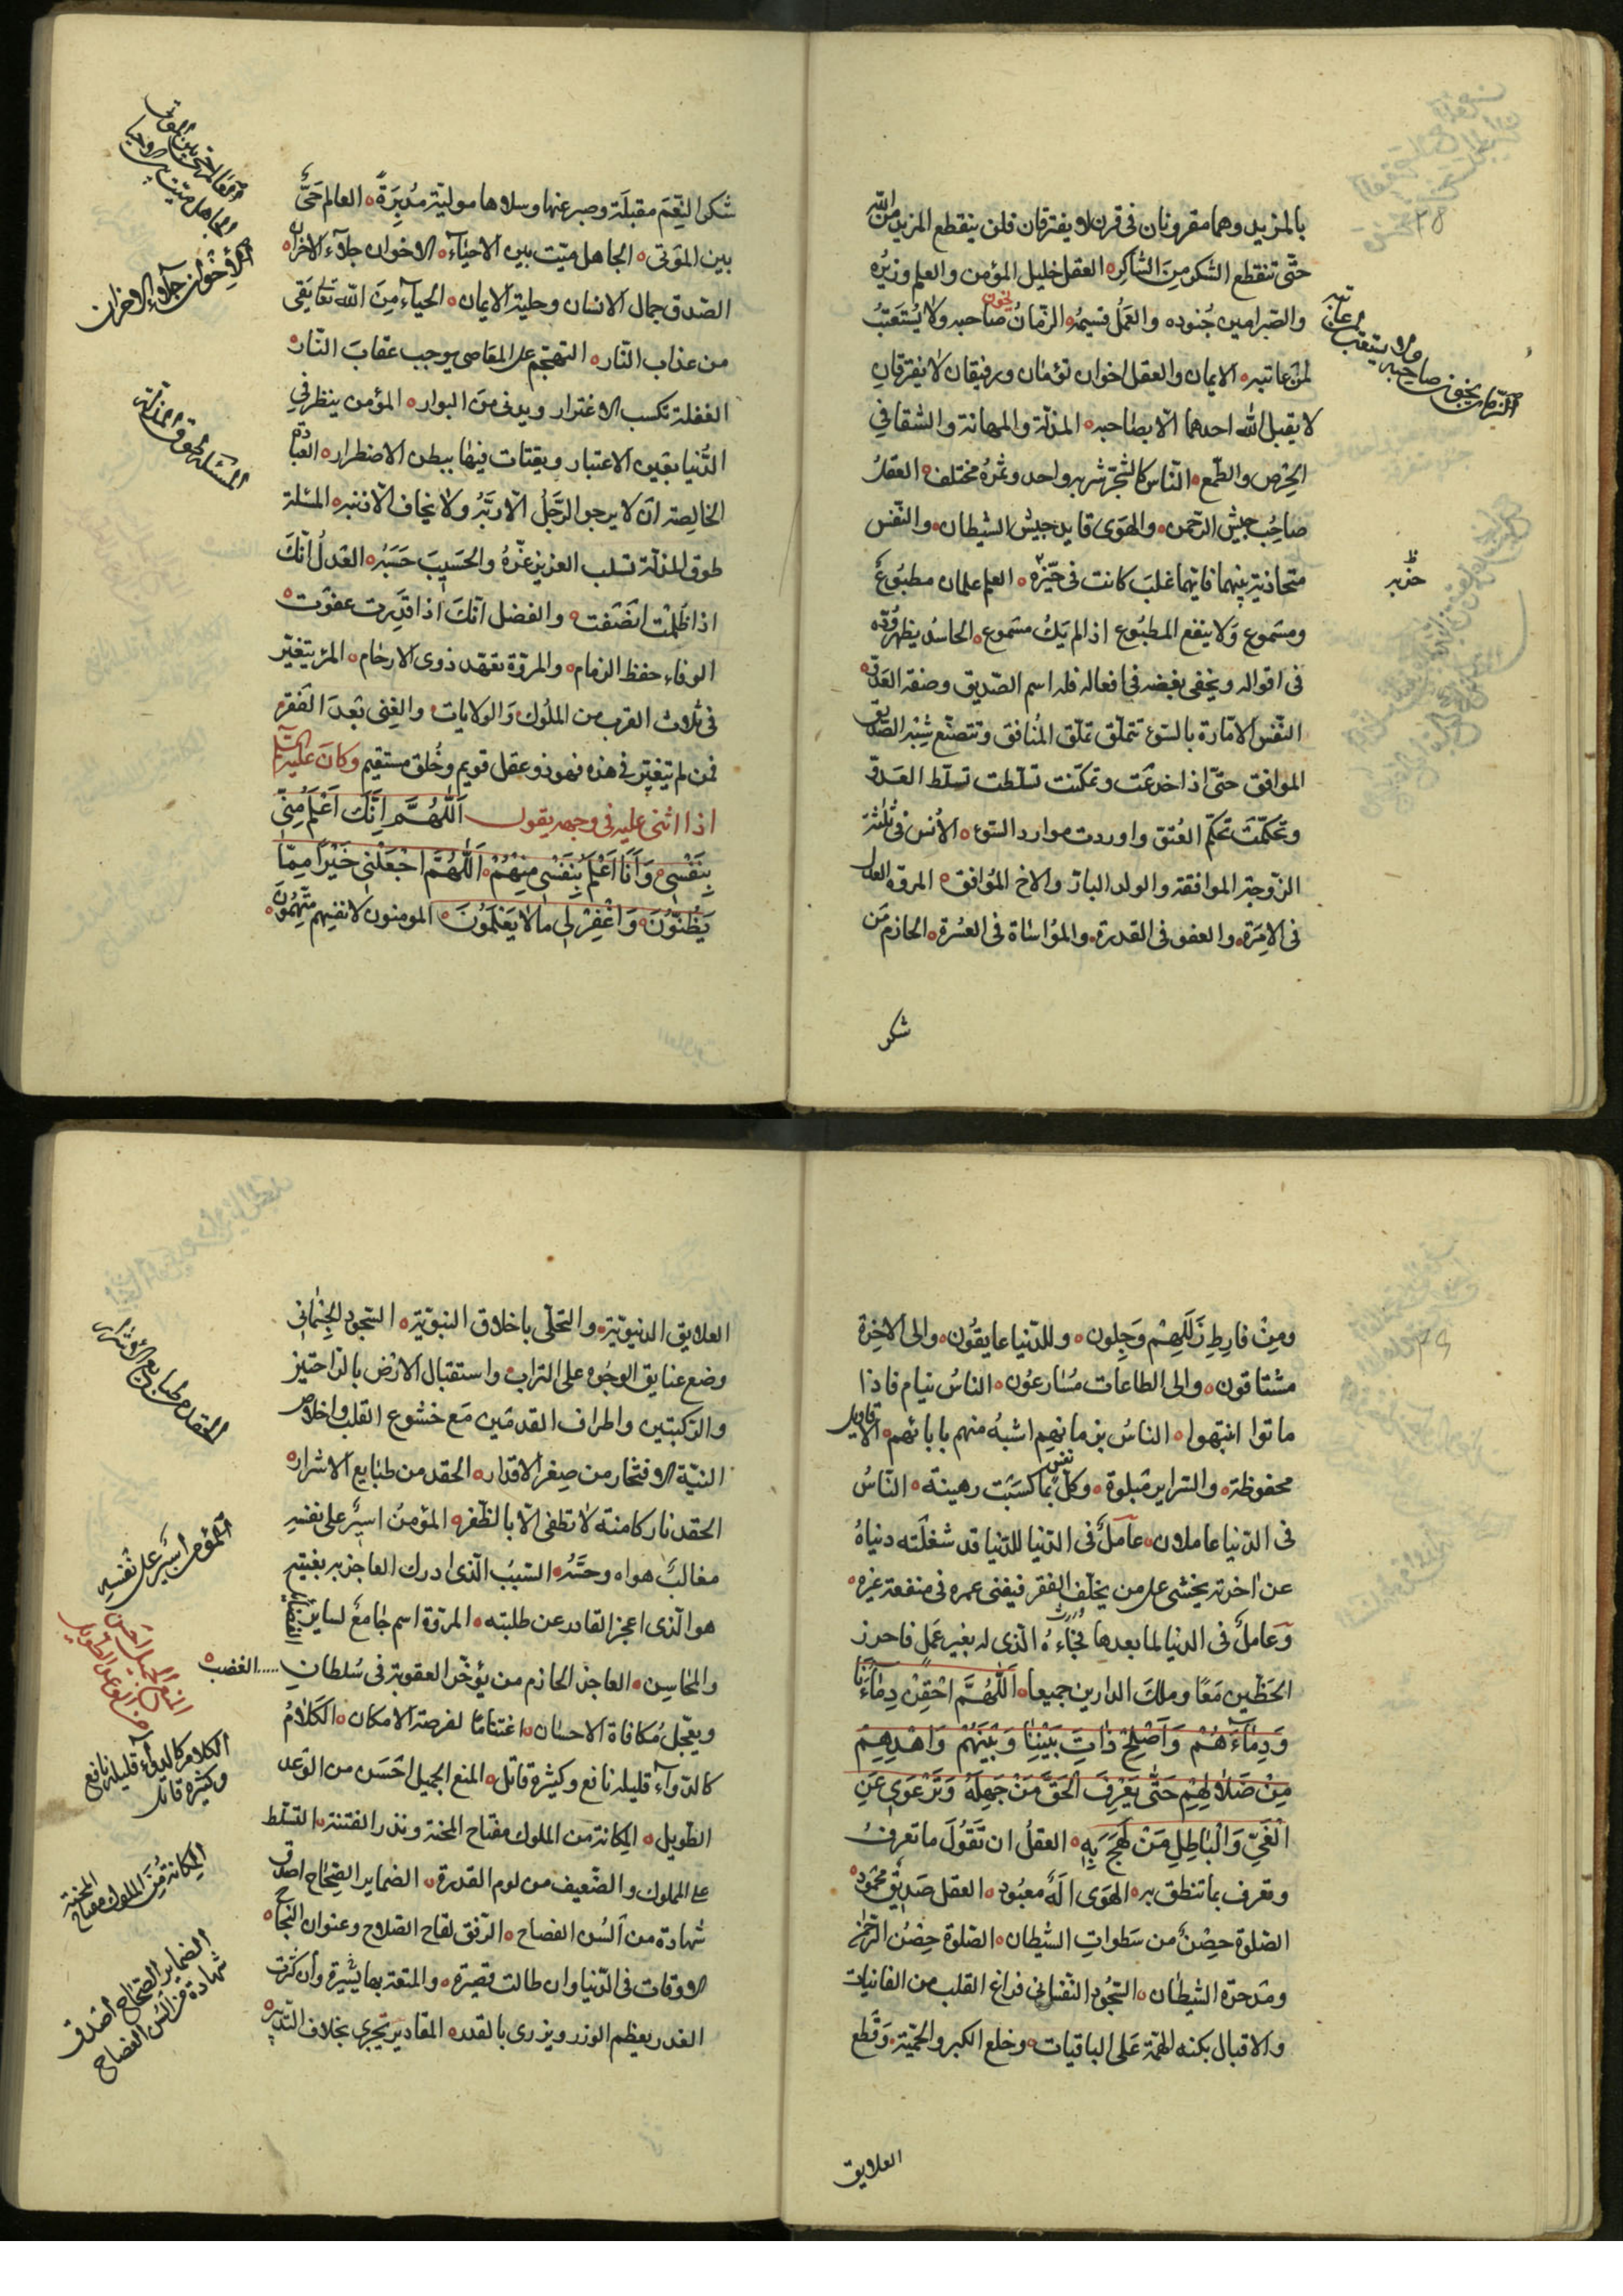 بالمزيد وهما مقرونان فى قرن لا يفترقان فلن ينقطع المزيد من الله
حتّى تنقطع الشكر مِنَ الشاكر ه العقل خليل المؤمن والعلم وزيره
والصبر امين جُنوده والعَمَلُ قسيمه ه الزّمانُ يخون صاحبه ولا يُستَعتبُ
لمن عاتبه ه الايمان والعقل اخوان توءمان ورفيقان لا يفترقان
لا يقبل الله احدهما الّا بصاحبه ه المذلّة والمهانة والشقا فى
الحِرص والطّمع ه النّاس كالشّجر شربه واحد وثمره مختلف ه العقلُ
صاحِبُ جيش الرّحمن ه والهوى قايد جيش الشيطان ه والنّفس
متجاذبة بينهما فايّهما غلبَ كانت فى حيّزه ه العلم علمان مطبُوعٌ
ومسموع وَلا ينفع المطبُوع اذا لم يَكُ مسَموع ه الحاسدُ يظهر وُدّه
فى اقواله ويخفى بغضه فى افعاله فله اسم الصّديق وصفة العدوّ ه
النّفس الامّارة بالسّوء تتملّق تملّق المُنافق وتتصنّع شِبْه الصّديق
الموافق حتّى اذا خدعَت وتمكّنت تسلّطت تسلّط العدوّ
وتحكّمَتَ تحكّم العُتق واوردت موارد السّوء ه الأنس فى ثلثة
الزّوجة الموافقة والولد البارّ والاخ المُوافق ه المروة العدل
فى الامرَة ه والعفو فى القدرة ه والمؤاساة فى العشرة ه الحازم مَن
شكر
الزّمان يخون صاحبه
ولا يستعتب لمن عاتبه
حزبه
شكر النِّعَم مقبلَة وصبر عنها وسلاها موليّة مدُبِرَةً ه العالم حَيٌّ
بين المَوتى ه الجاهل ميّت بين الاحيَآء ه الاخوان جلآء الاحزان ه
الصّدق جمال الانسان وحلية الايمان ه الحيآء مِنَ الله تعالى يَقى
من عذاب النّار ه التهجّم على المعَاصى يوجب عقابَ النّار ه
الغفلة تكسب الاغترار ويدنى منَ البوار ه المؤمن ينظر فى
الدُّنيا بعَين الاعتبار ويقتات فيهَا ببطن الاضطرار ه العبادة
الخالِصة ان لا يرجو الرَّجلُ الّا ربَّهُ وَلا يخاف الّا ذنبه ه المسئلة
طوق المذلّة تسلب العزيز عزّهُ والحَسيبَ حَسَبَهُ ه العَدلُ انّكَ
اذا ظُلِمْتَ انصَفت ه والفضل انّكَ اذا قدَرت عفوت ه
الوفاء حفظ الزمام ه والمروّة تعهّد ذوى الارحَام ه المرء يتغيّر
فى ثلاث القرب من الملُوك وَالولايَات والغِنى بعَدَ الفقر ه
فمن لم يتغيّر فى هذه فهو ذو عقل قويم وخُلق مستقيم وكانَ عليه السلام
اذا اثنى عليه فى وجهه يقول اَللّهُمَّ اِنَّكَ اَعْلَمُ مِنّى
بِنَفْسى ه وَاَنَا اَعْلَمُ بِنَفْسى مِنْهُمْ ه اَللّهُمَّ اجْعَلْنى خَيْرًا مِمّا
يَظُنّوُنَ ه وَاغْفِرْ لى ما لا يَعْلَمُونَ ه المومنون لانفسِهم متّهمُونَ ه
والجاهل ميّت بين الاحيا
الإخوان جلآء الاحزان
المسئلة طوق المذلّة
ومِنْ فارِطِ زَلَلِهِمْ وَجِلون ه وللدّنيا عايقُون ه والى الاخِرة
مشتاقون ه والى الطاعات مسُارعوُن ه الناسُ نيام فاذا
ماتوا انتبهوا ه الناسُ بزمانهِم اشبهُ منهم بابائهم ه الاقاويل
محفوظة ه والسّراير مَبلوة ه وكلّ نفس بما كسَبَت رهينة ه النّاسُ
فى الدّنيا عاملان ه عآملٌ فى الدّنيا للدّنيا قد شغلَته دنياهُ
عن اخرته يخشى على من يخلّف الفقر فيفنى عمره فى منفعة غيره ه
وَعَاملٌ فى الدنيا لما بعدها فجَآءهُ الّذى له بغير عَمَلٍ فاحرز
الحَظّين مَعًا وملكَ الدارين جميعا ه اَللّهُمَّ احْقِنْ دِمآءَنا
وَدِمآءَهُمْ وَاَصْلِحْ ذاتَ بَيْنِنا وَبَيْنَهُمْ وَاهْدِهِمْ
مِنْ ضَلالِهِمْ حَتّى يَعْرِفَ الْحَقَّ مَنْ جَهِلَهُ وَيَرْعَوِىَ عَنِ
الْغَىِّ وَالْباطِلِ مَنْ لَهِجَ بِهِ ه العقلُ ان تَقُولَ ما تَعرفُ
وتعرف بما تنطق به ه الهَوَى اِلَهٌ معبُود ه العقل صَديقٌ محمُود ه
الصّلوة حِصْنٌ من سَطواتِ الشيطان ه الصّلوة حِصْن الرّحمن
ومَدحرة الشيطَان ه السّجُود النّفسانى فراغ القلب من الفانيات
والاقبال بكنه الهمّة عَلى الباقيات ه وخلع الكبر والحميّة ه وَقطع
العلايق
العلايق الدنيويّة ه والتّحلّى باخلاق النبويّة ه السّجود الجُسمانى
وضع عتايق الوجُوه على التراب ه واستقبال الارْض بالرّاحتين
والرّكبتين واطراف القدمَين مَع خشوع القلب واخلاص
النيّة ه الافتخار من صِغر الاقدار ه الحقد من طبَايع الاشرار ه
الحقد نار كامنة لا تطفى الّا بالظّفر ه المؤمنُ اميرٌ على نفسِهِ
مغالبٌ هواه وحسَّهُ ه السّببُ الّذى ادرك العاجز به بغيته
هو الّذى اعجز القادر عن طلبته ه المروّة اسم جَامعٌ لساير الفضايل
والمحَاسِن ه العاجل الحازم من يؤخّر العقوبة فى سُلطانِ الغضب ه
ويعَجّل مُكافاة الاحسان ه اغتنامًا لفرصة الامكان ه الكَلامُ
كالدّوآء قليله نافع وكثيره قاتل ه المنع الجميل احَسَن من الوَعد
الطّويل ه المِكانة من الملوك مفتاح المحنة وبذر الفتنة ه التسلّط
على المملوك والضّعيف من لوم القدرة ه الضماير الصّحَاح اصدق
شهادة من اَلسُن الفصاح ه الرّفق لقاح الصّلاح وعنوان النّجآح ه
الاوقات فى الدّنيا وان طالت قصيرة ه والمتعة بها يسَيرة وان كثرت
الغدر يعظم الوزر ويزرى بالقدر ه المقادير تجرى بخلاف التّدبير ه
الحقد من طبايع الاشرار
اَلمؤمن اميرٌ على نفسِه
المنع الجميل احسن
من الوعد الطويل
الكلام كالدوآء قليله نافع
وكثيره قاتل
المِكانة مِنَ الملوك مفتاح المحنة
الضماير الصّحاح اَصدق
شهادة من اَلسُن الفصاح